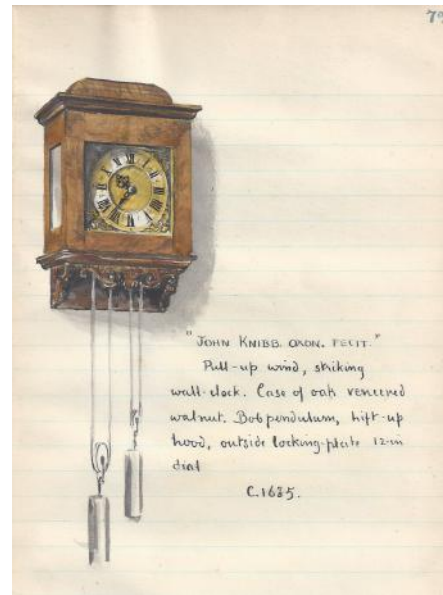 "JOHN KNIBB. OXON. FECIT."
Pull-up wind, striking
wall-clock. Case of oak veneered
walnut. Bob pendulum, lift-up
hood, outside locking-plate 12-in
dial
C.1685.